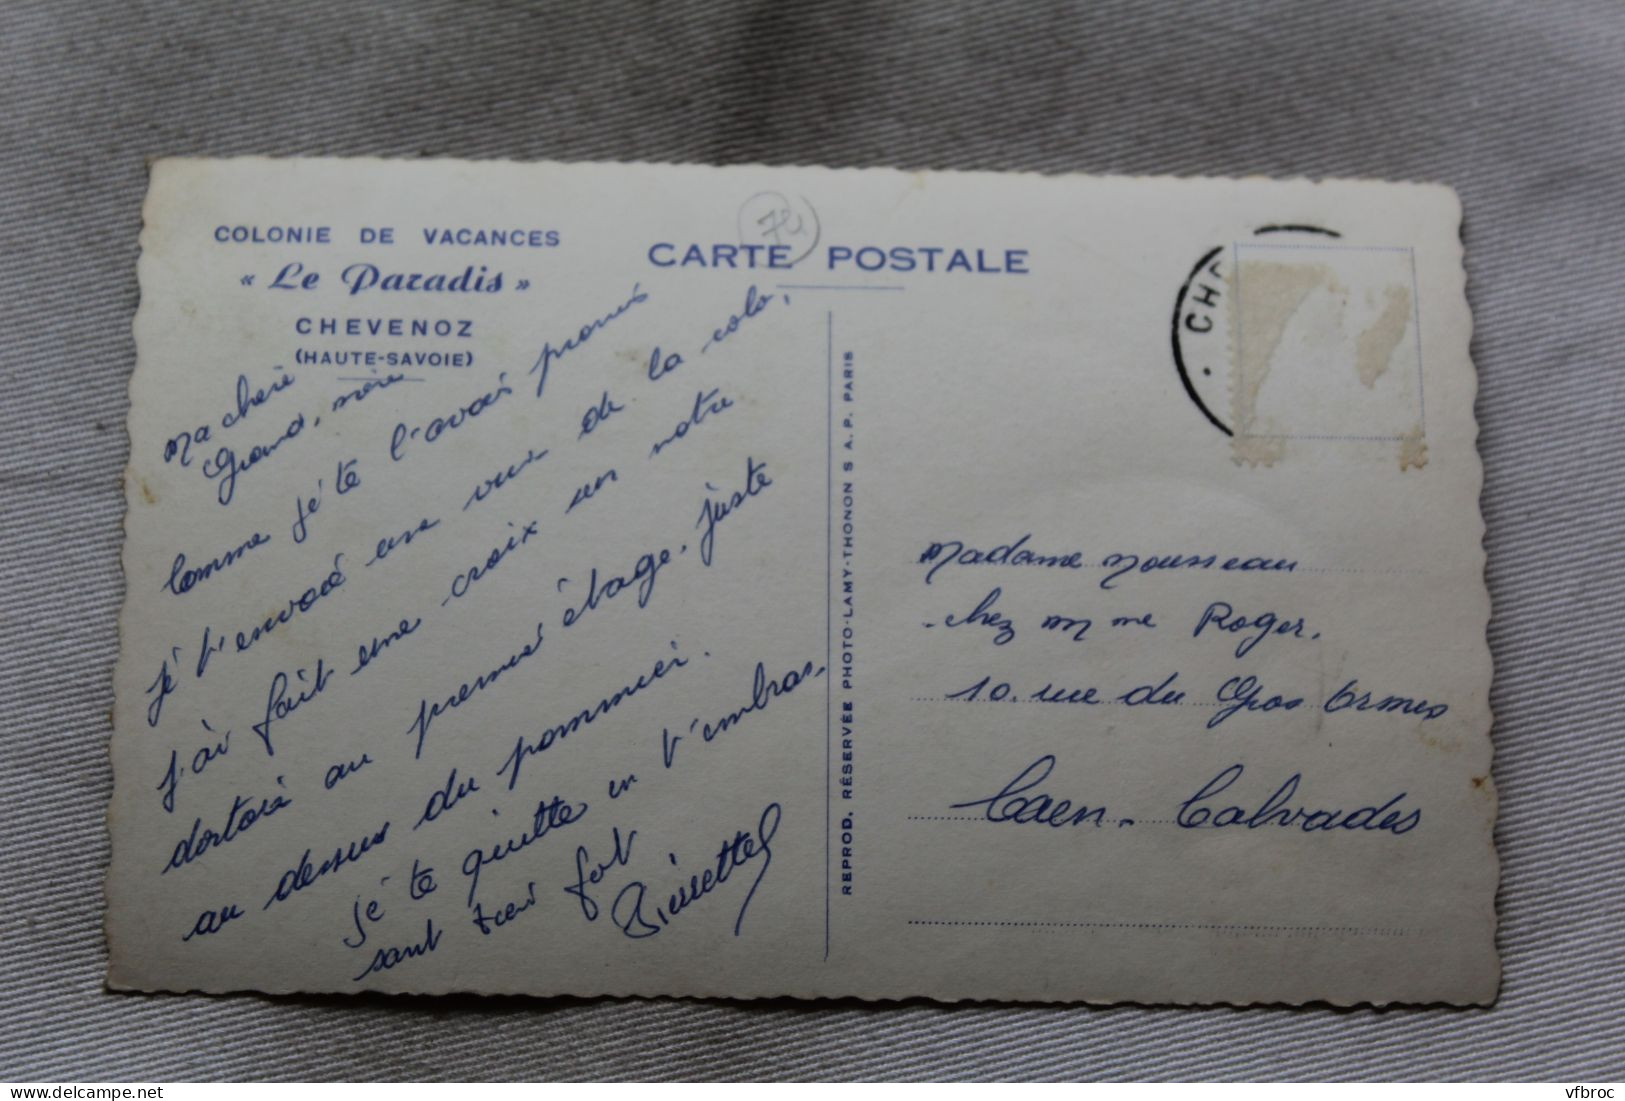 COLONIE DE VACANCES
« Le Paradis »
CHEVENOZ
(HAUTE-SAVOIE)
74
CARTE POSTALE
Ma cherie
Grand, mère
Comme je te l'avais promis
je t'envoie une vue de la colo,
j'ai fait une croix sur notre
dortoir au premier étage. juste
au dessus du pommier.
je te quitte en t'embras-
sant fort
REPROD. RÉSERVÉE PHOTO-LAMY-THONON S A.P. PARIS
CH
Madame Mousseau
chez Mme Roger.
10. rue du Gros Ormes
Caen - Calvados
vfbroc